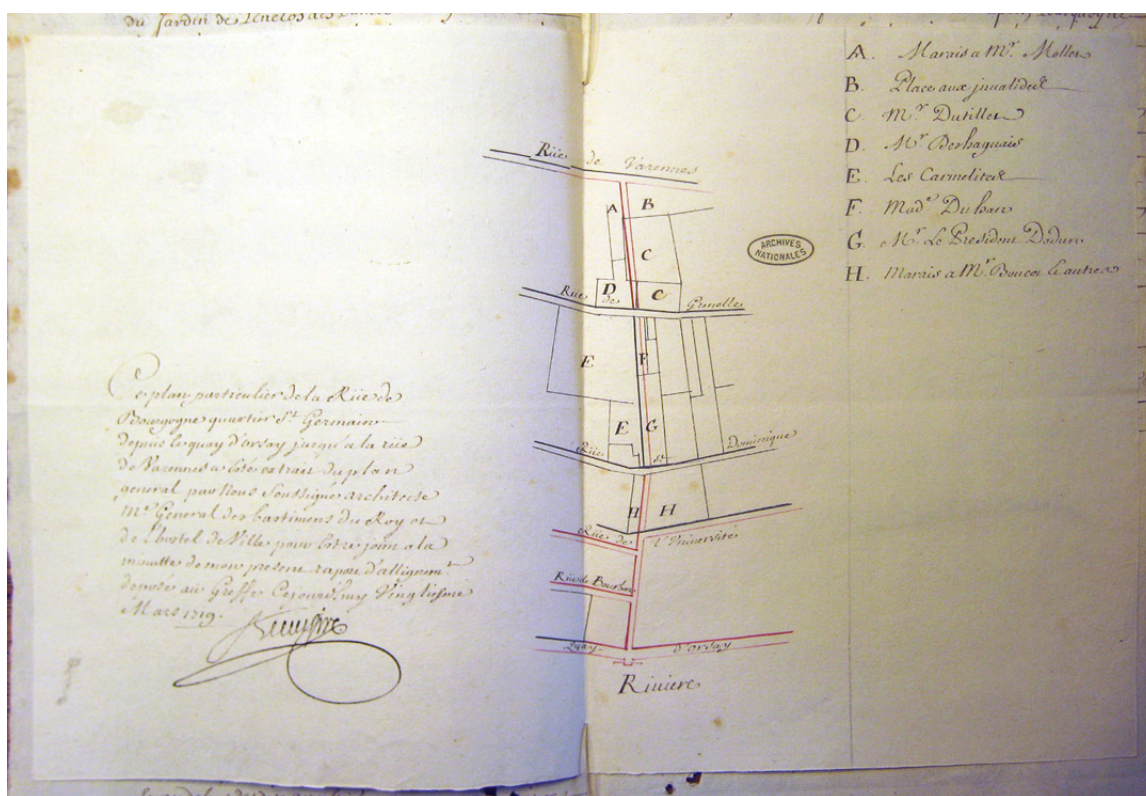 du Jardin de l'enclos des
A. Marais a Mr. Mollet
B. Place aux jnualides
C. Mr. Dutillet
D. Mr. Berhaguais
E. Les Carmelites
F. Made. Du han
G. Mr. Le President Dodun
H. Marais a Mr. Boucot & autres
ARCHIVES
NATIONALES
Rüe de Varennes
A B
C
D C
Rüe de Grenelle
E F
E G
Rüe St. Dominique
H H
Rüe de l'Université
Rüe de Bourbon
Quay d'orsay
Riuiere
Ce plan particulier de la Rüe de
Bourgogne quartier St. Germain
depuis le quay d'orsay jusqu'a la rüe
de Varennes a esté extrait du plan
general par Nous Soussigné architecte
Me. General des bastimens du Roy et
de l'hostel de Ville pour estre joint a la
minutte de mon present raport d'allignemt.
deposé au Greffe Cejourd'huy Vingtiesme
Mars 1719.